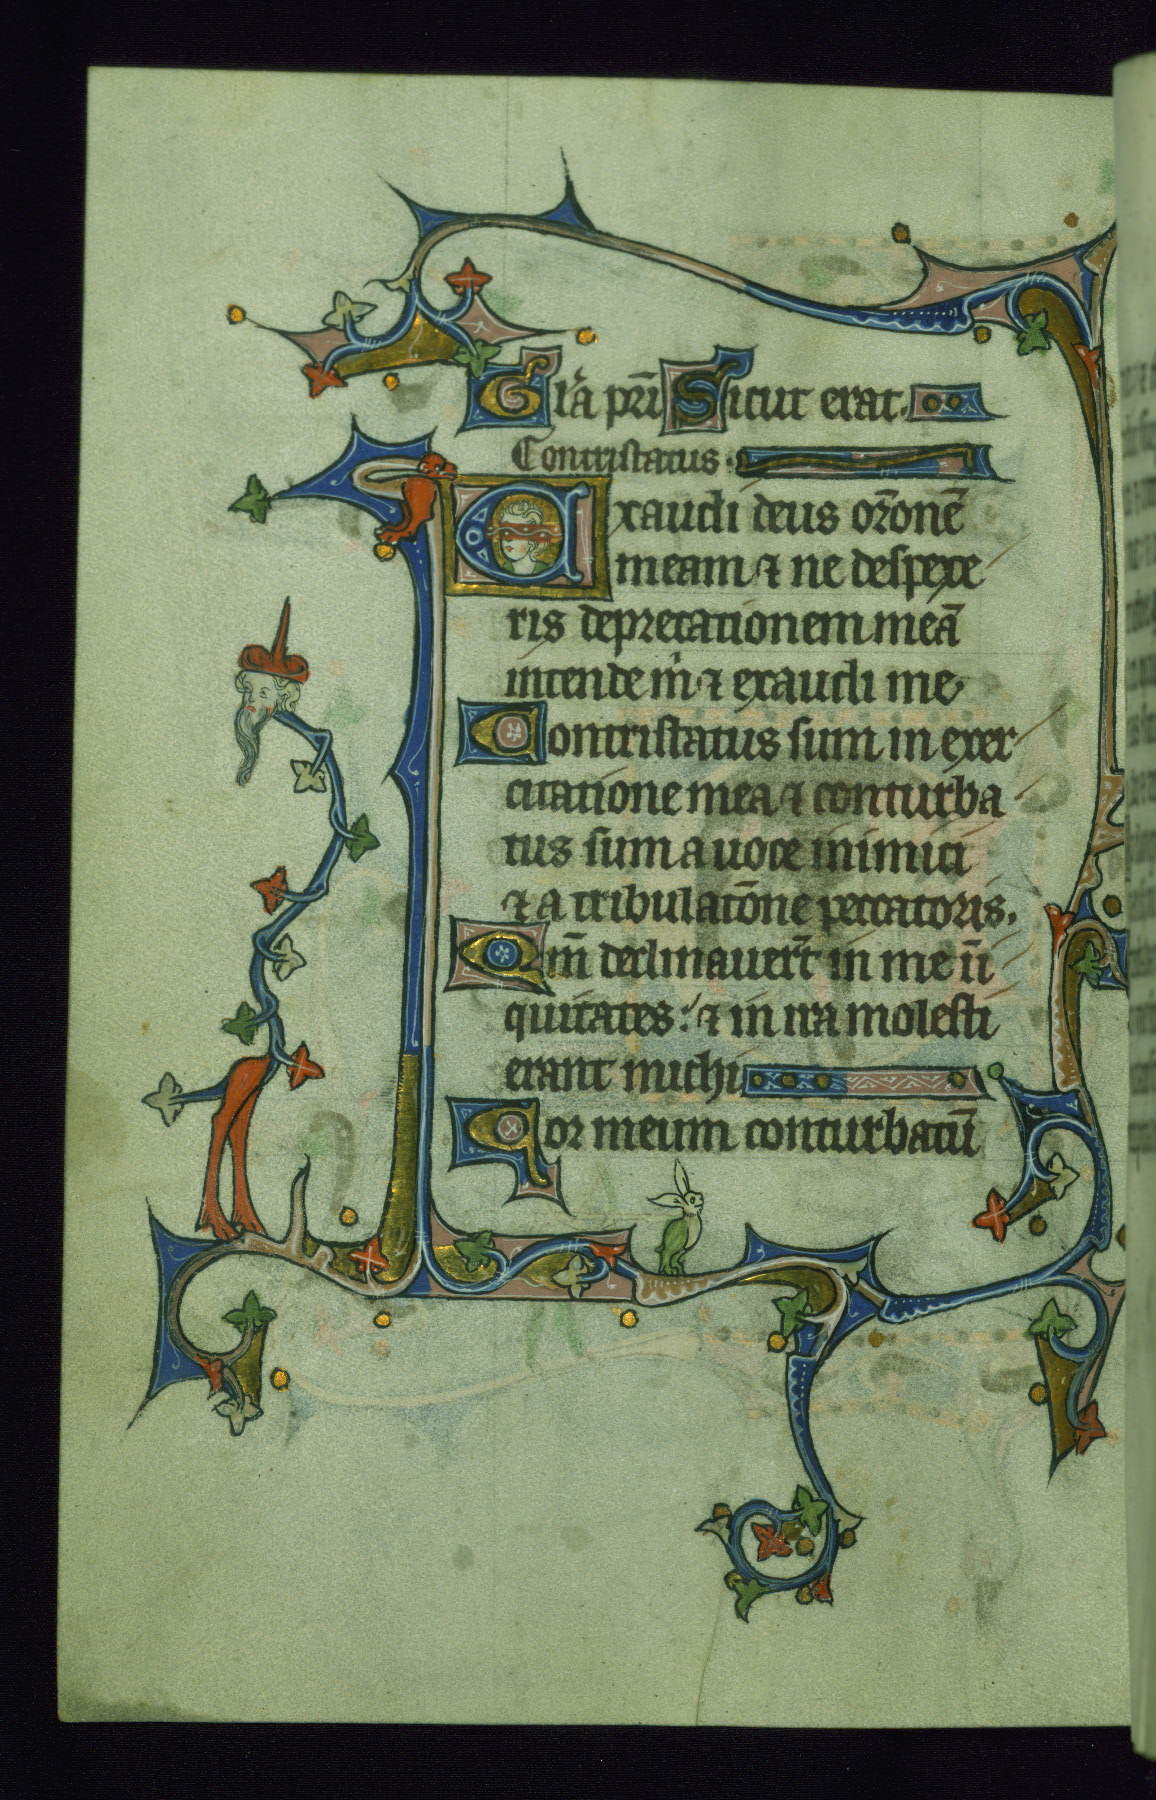 Gl'a pr̄i Sicut erat.
Contristatus.
Exaudi deus or̄onē
meam ⁊ ne despexe
ris deprecationem meā
intende m̍ ⁊ exaudi me
Contristatus sum in exer
citatione mea ⁊ conturba
tus sum a uoce inimici
⁊ a tribulatōne peccatoris.
Qm̄ declinauer̄t in me ī
quitates: ⁊ in ira molesti
erant michi
Cor meum conturbatū